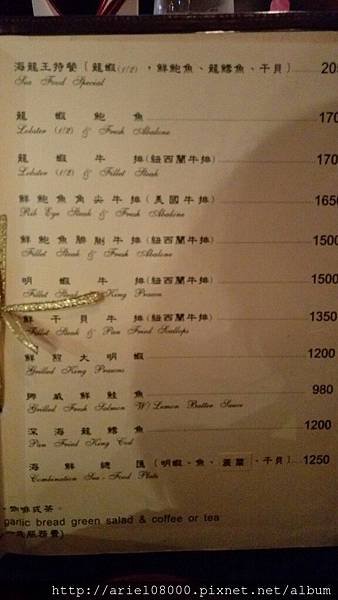 海龍王特餐 [ 龍蝦(1/2) , 鮮鮑魚、龍鱈魚、干貝 ) 205
Sea Food Special
龍蝦鮑魚 170
Lobster (1/2) & Fresh Abalone
龍蝦牛排(紐西蘭牛排) 170
Lobster (1/2) & Fillet Steak
鮮鮑魚肉尖牛排(美國牛排) 1650
Rib Eye Steak & Fresh Abalone
鮮鮑魚腓脷牛排(紐西蘭牛排) 1500
Fillet Steak & Fresh Abalone
明蝦牛排(紐西蘭牛排) 1500
Fillet Steak King Prawn
鮮干貝牛排(紐西蘭牛排) 1350
Fillet Steak & Pan Fried Scallops
鮮煎大明蝦 1200
Grilled King Prawns
挪威鮮鮭魚 980
Grilled Fresh Salmon W/Lemon Butter Sauce
深海龍鱈魚 1200
Pan Fried King Cod
海鮮總匯(明蝦、魚、、干貝) 1250
Combination Sea-Food Plate
、咖啡或茶。
garlic bread green salad & coffee or tea
一成服務費)
http://ariel08000.pixnet.net/album